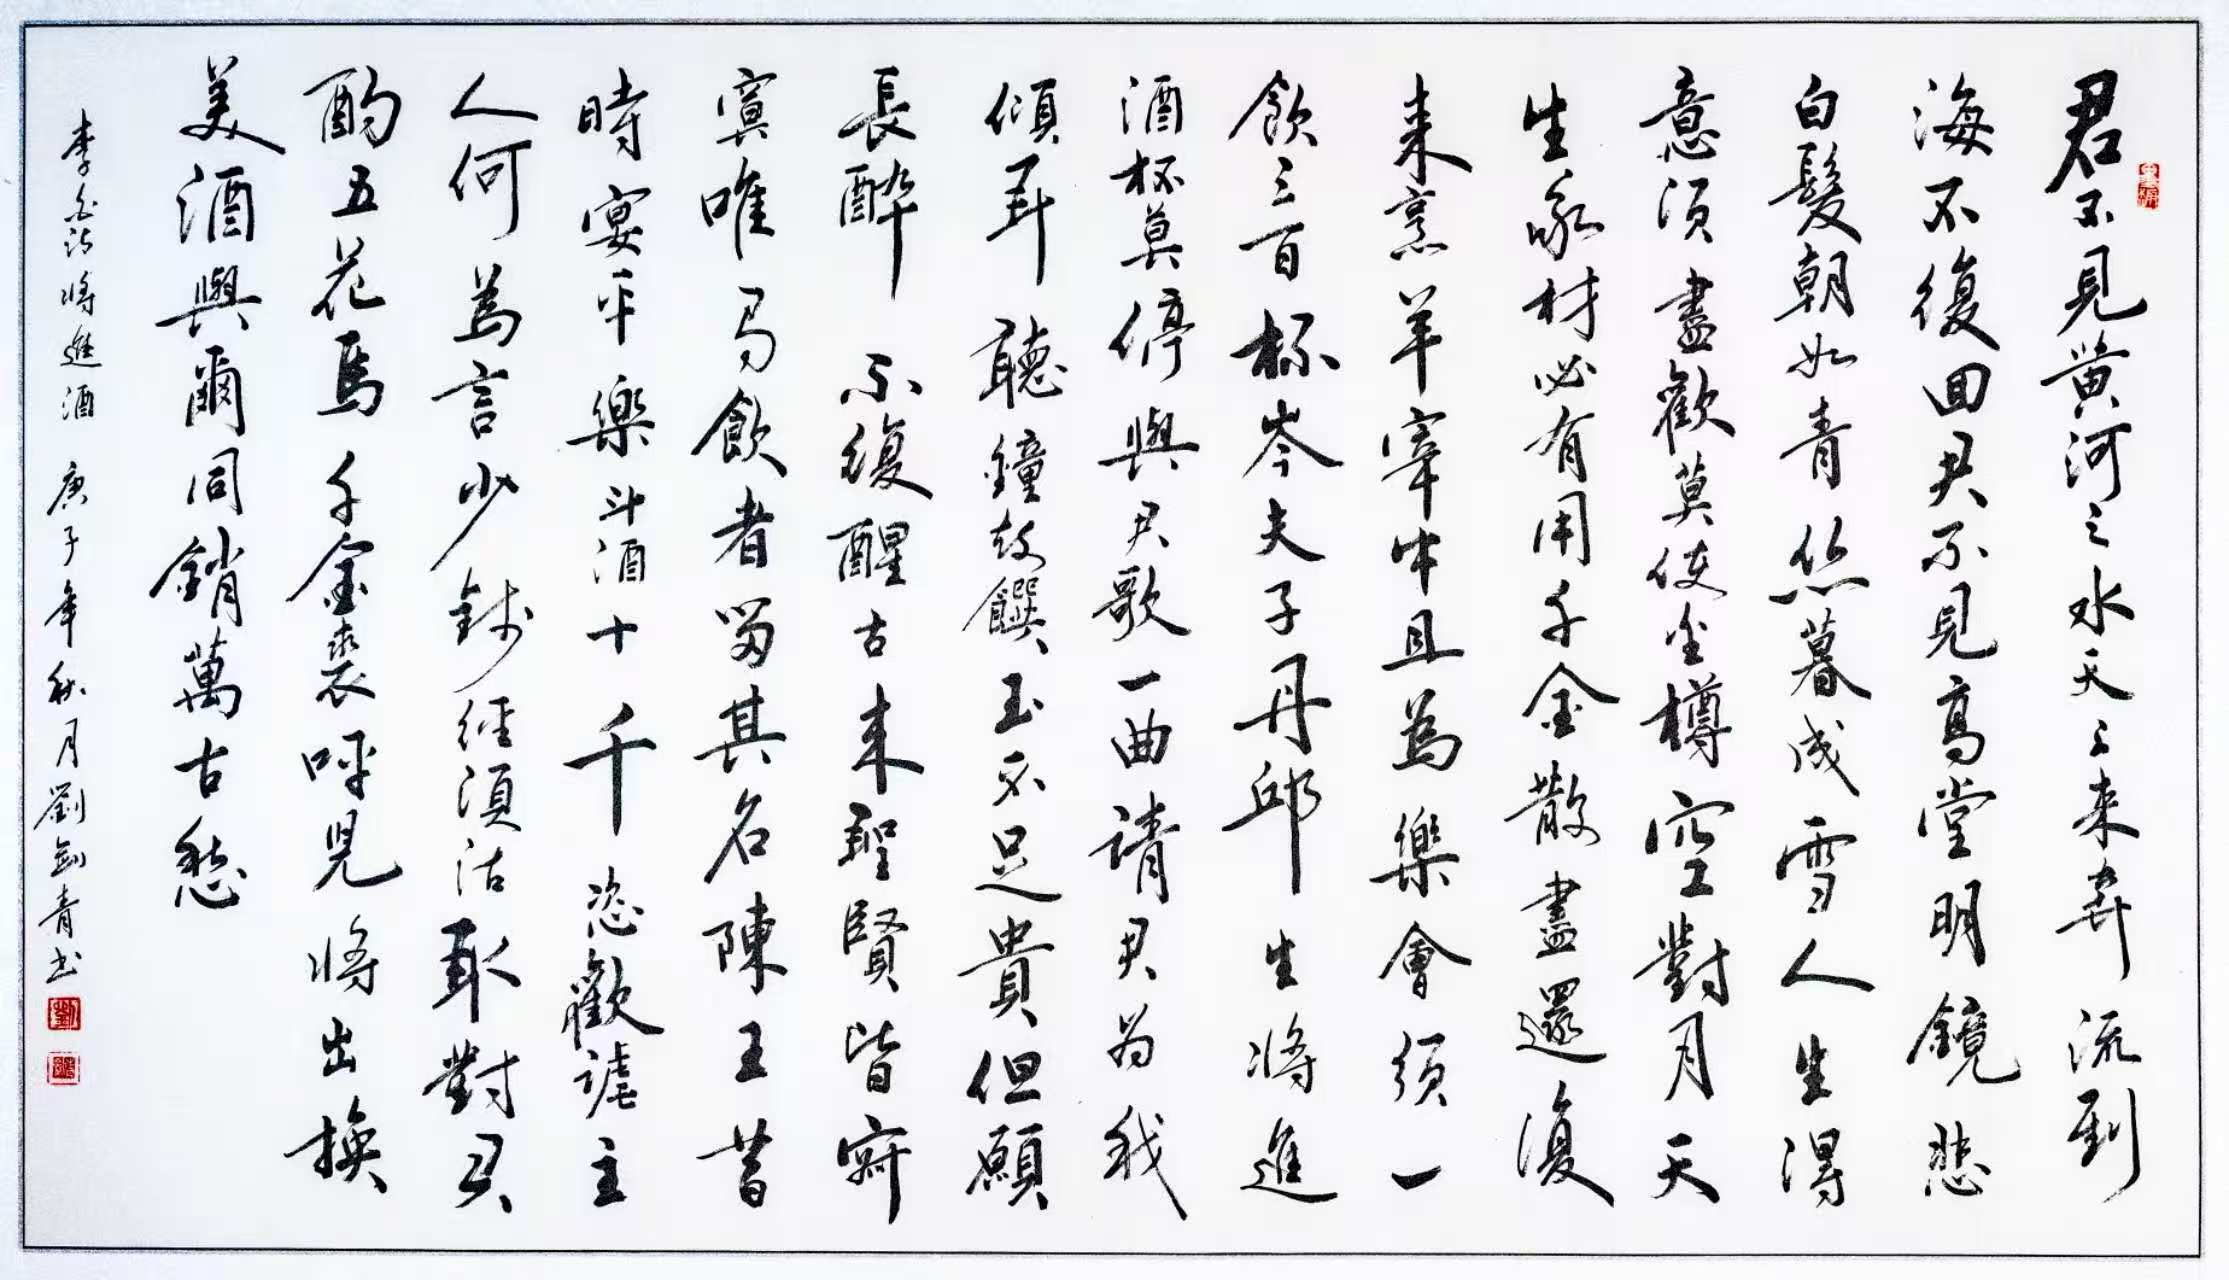 君不見黃河之水天上來奔流到
海不復回君不見高堂明鏡悲
白髮朝如青絲暮成雪人生得
意須盡歡莫使金樽空對月天
生我材必有用千金散盡還復
來烹羊宰牛且為樂會須一
飲三百杯岑夫子丹邱生將進
酒杯莫停與君歌一曲請君為我
傾耳聽鐘鼓饌玉不足貴但願
長醉不復醒古來聖賢皆寂
寞唯有飲者留其名陳王昔
時宴平樂斗酒十千恣歡謔主
人何為言少錢徑須沽取對君
酌五花馬千金裘呼兒將出換
美酒與爾同銷萬古愁
李白詩將進酒 庚子年秋月劉劍青书